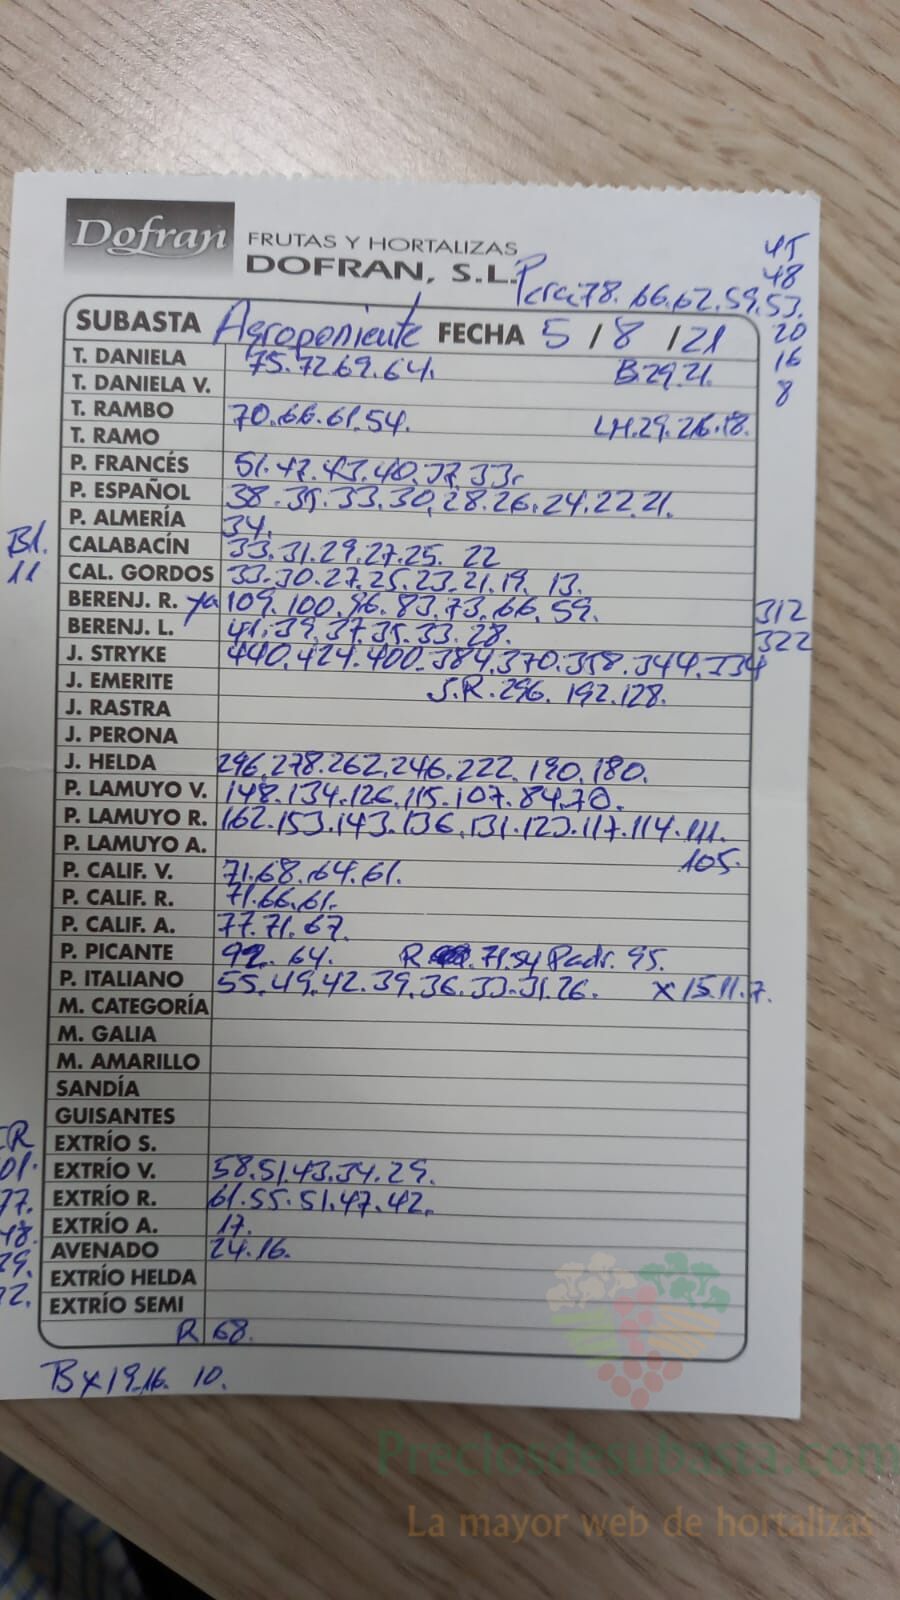 Dofran FRUTAS Y HORTALIZAS
DOFRAN, S.L.
45
48
78. 66.62.59.53.
SUBASTA Agroponiente FECHA 5 / 8 / 21
20
16
8
T. DANIELA 75.72.69.64. B.29.21.
T. DANIELA V.
T. RAMBO 70.66.61.54. LH.29.26.18.
T. RAMO
P. FRANCÉS 51.47.43.40.37.33.
P. ESPAÑOL 38.35.33.30.28.26.24.22.21.
P. ALMERÍA 34.
Bl.
11
CALABACÍN 33.31.29.27.25. 22
CAL. GORDOS 33.30.27.25.23.21.19. 13.
BERENJ. R. ya 109.100.96.83.73.66.59.
312
322
BERENJ. L. 41.39.37.35.33.28.
J. STRYKE 440.424.400.384.370.358.344.334
J. EMERITE S.R.296. 192.128.
J. RASTRA
J. PERONA
J. HELDA 296.278.262.246.222.190.180.
P. LAMUYO V. 148.134.126.115.107.84.70.
P. LAMUYO R. 162.153.143.136.131.123.117.114.111.
P. LAMUYO A. 105.
P. CALIF. V. 71.68.64.61.
P. CALIF. R. 71.66.61.
P. CALIF. A. 77.71.67.
P. PICANTE 92.64. R 71.54 Padr. 95.
P. ITALIANO 55.49.42.39.36.33.31.26. x 15.11.7.
M. CATEGORÍA
M. GALIA
M. AMARILLO
SANDÍA
GUISANTES
EXTRÍO S.
EXTRÍO V. 58.51.43.34.29.
EXTRÍO R. 61.55.51.47.42.
EXTRÍO A. 17.
AVENADO 24.16.
EXTRÍO HELDA
EXTRÍO SEMI
R 68.
Bx19.16. 10.
Preciosdesubasta.com
La mayor web de hortalizas